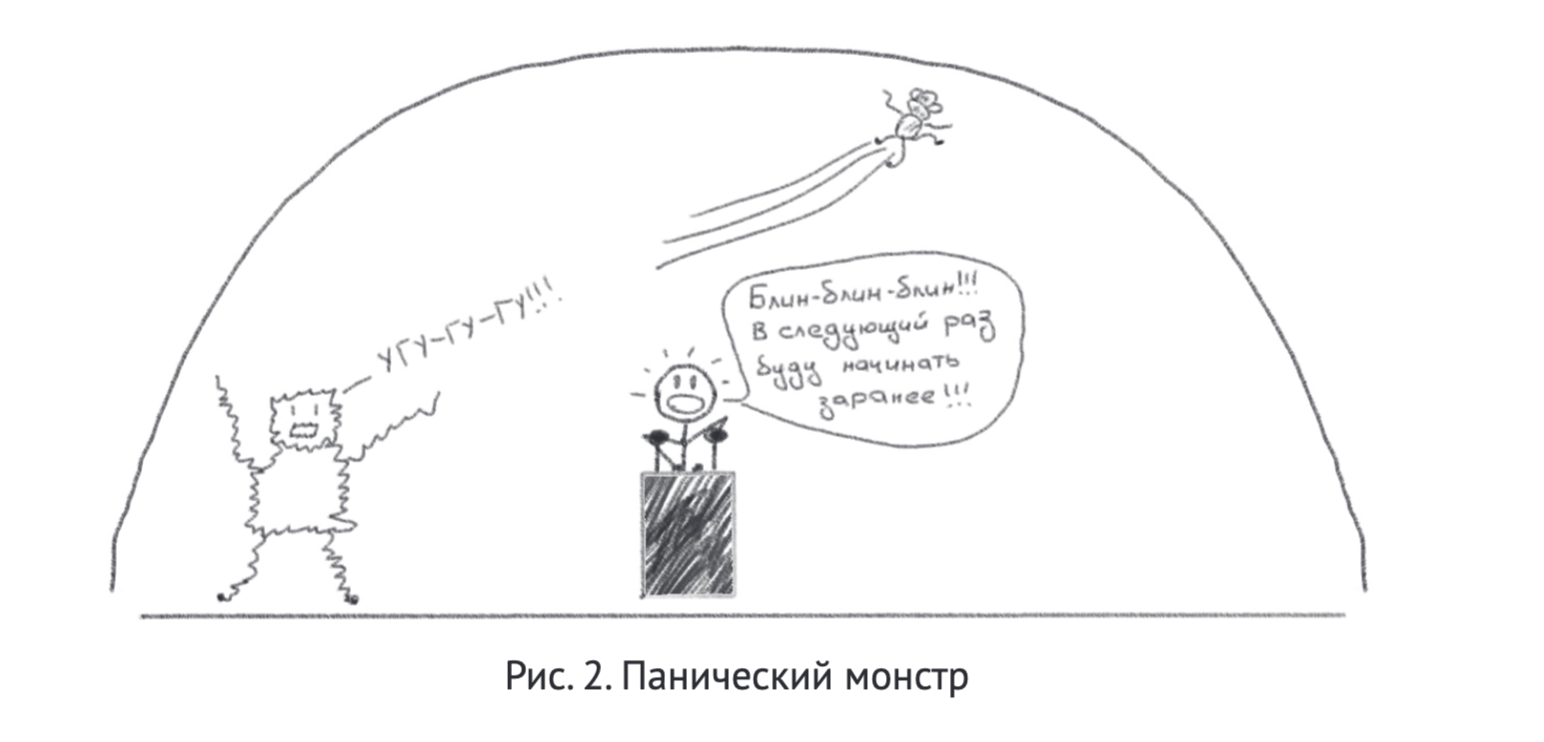 УГУ-ГУ-ГУ!!!
Блин-блин-блин!!!
В следующий раз
буду начинать
заранее!!!
Рис. 2. Панический монстр